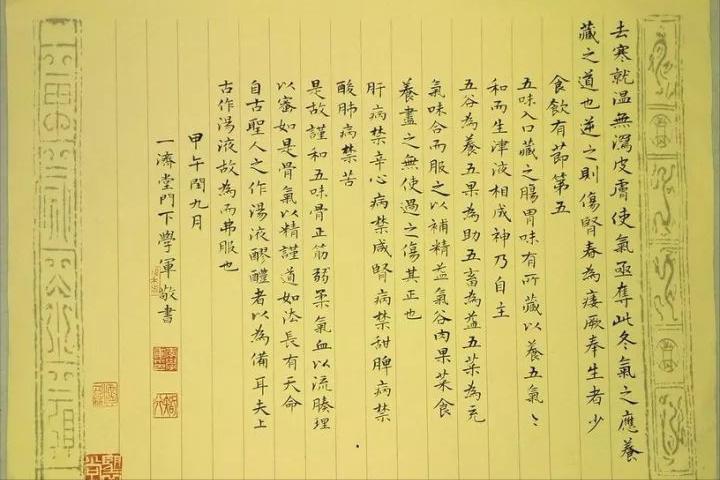 去寒就温無瀉皮膚使氣亟奪此冬氣之應養
藏之道也逆之則傷腎春為痿厥奉生者少
食飲有節第五
五味入口藏之腸胃味有所藏以養五氣〻
和而生津液相成神乃自主
五谷為養五果為助五畜為益五菜為充
氣味合而服之以補精益氣谷肉果菜食
養盡之無使過之傷其正也
肝病禁辛心病禁咸腎病禁甜脾病禁
酸肺病禁苦
是故謹和五味骨正筋弱柔氣血以流腠理
以密如是骨氣以精謹道如法長有天命
自古聖人之作湯液醪醴者以為備耳夫上
古作湯液故為而弗服也
甲午閏九月
一濟堂門下學軍敬書